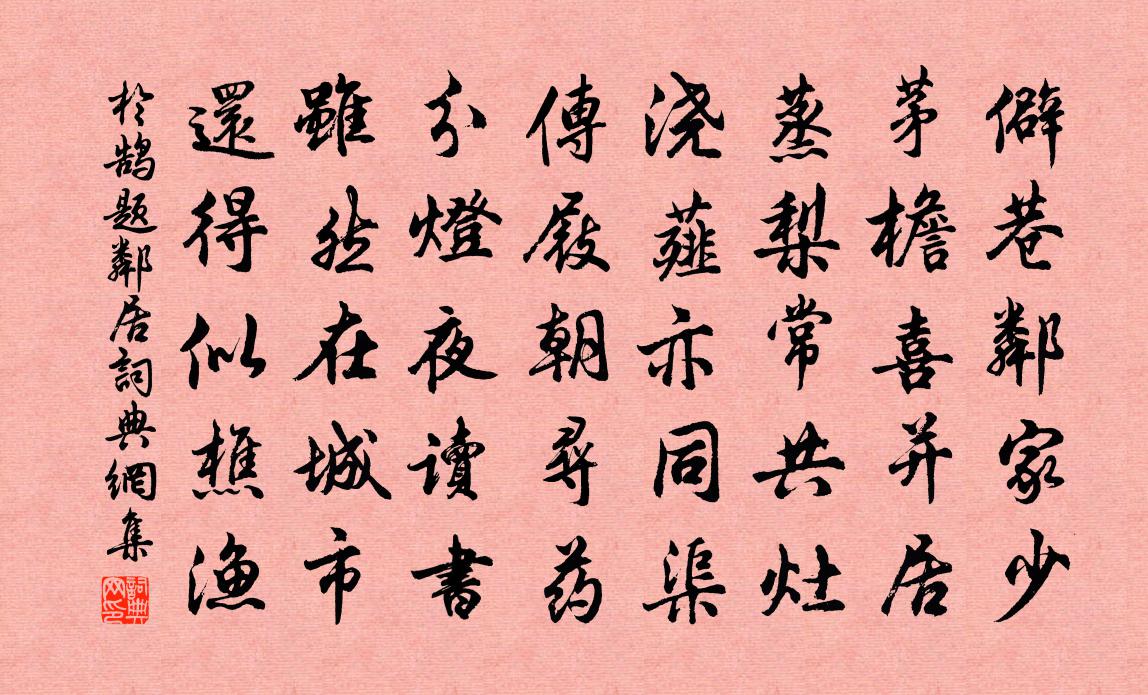 僻巷鄰家少
茅檐喜并居
蒸梨常共灶
浇薤亦同渠
傳屐朝尋药
分燈夜讀書
雖然在城市
還得似樵漁
於鵠題鄰居詞典網集
詞典网印